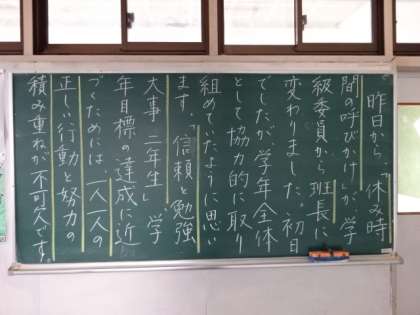 昨日から、「休み時
間の呼びかけ」が、学
級委員から班長に
変わりました。初日
でしたが、学年全体
として協力的に取り
組めていたように思い
ます。「信頼と勉強
大事 二年生」学
年目標の達成に近
づくためには、一人一人の
正しい行動と努力の
積み重ねが不可欠です。